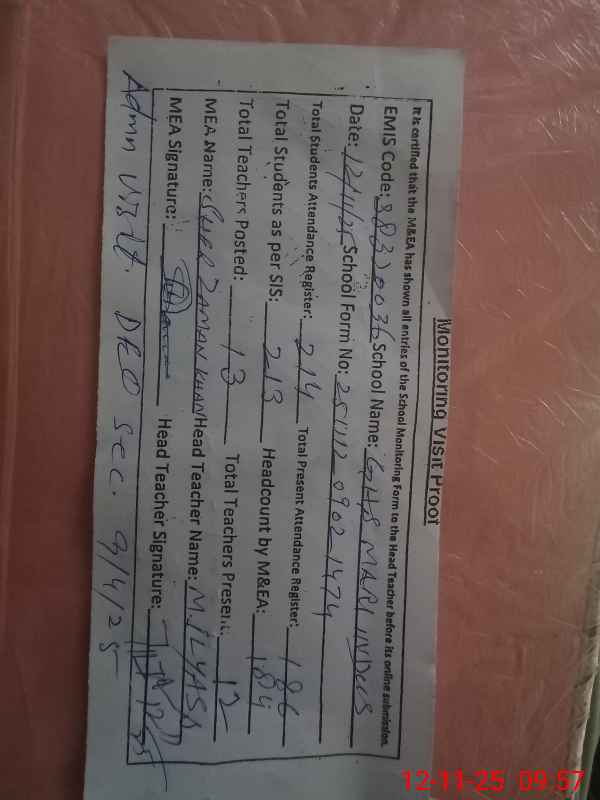 Monitoring Visit Proof
It is certified that the M&EA has shown all entries of the School Monitoring Form to the Head Teacher before its online submission.
EMIS Code: 38320036 School Name: GHS MARI INDUS
Date: 12/11/25 School Form No: 251112 09021474
Total Students Attendance Register: 214 Total Present Attendance Register: 186
Total Students as per SIS: 213 Headcount by M&EA: 184
Total Teachers Posted: 13 Total Teachers Present: 12
MEA Name: SHER ZAMAN KHAN Head Teacher Name: M. ILYAS
MEA Signature: Head Teacher Signature:
Admn Visit. DEO Sec. 9/4/25
12-11-25 09:57